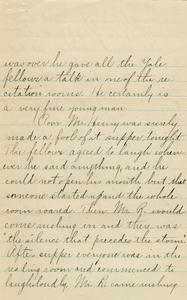 was over he gave all the Yale
fellows a talk in one of the re
citation rooms. He certainly is
a very fine young man.
Poor Mr. Henry was surely
made a fool of at supper tonight.
The fellows agreed to laugh when
ever he said anything, and he
could not open his mouth but that
someone started up and the whole
room roared. Then Mr. R. would
come rushing in and there was
"the silence that precedes the storm".
After supper everyone was in the
reading room and commenced to
laugh loud by Mr. R. came rushing